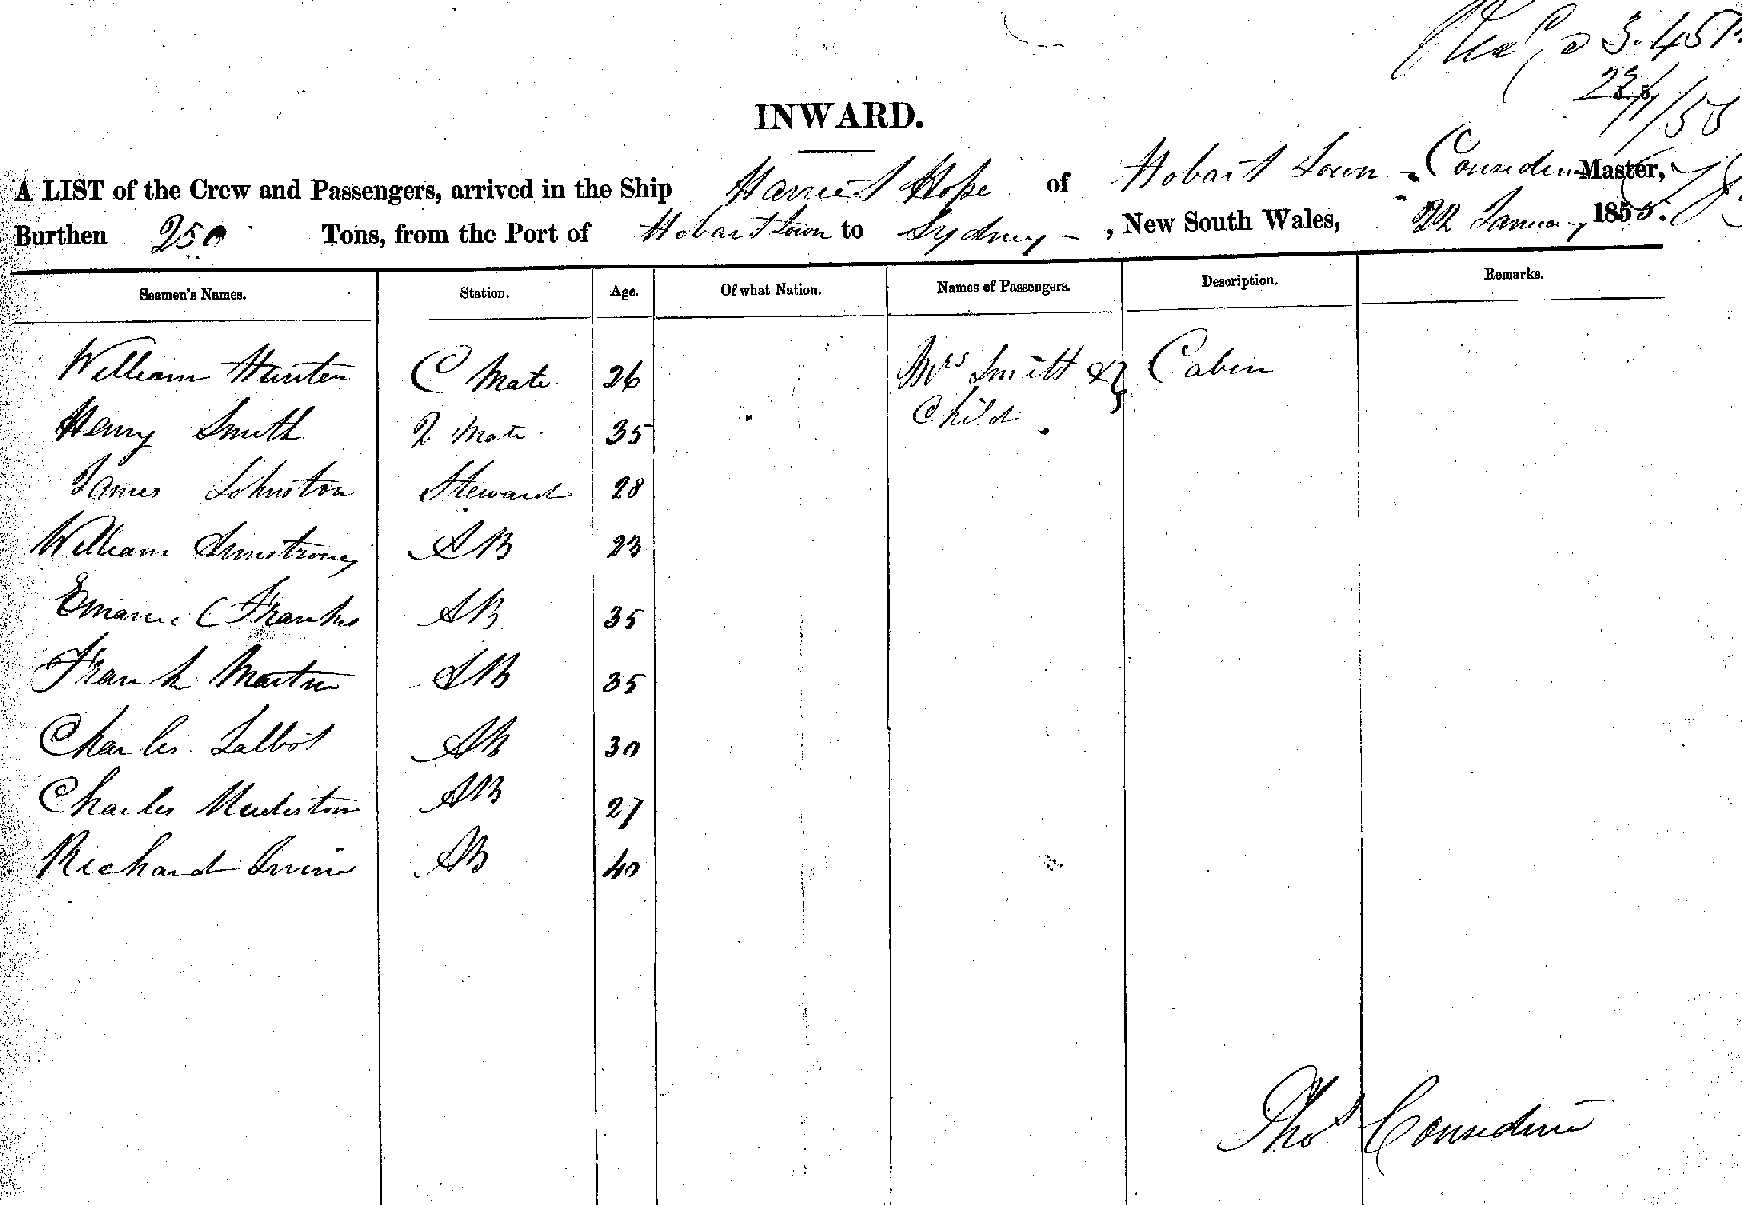 Rec @ 3.45 P.
22/1/55
INWARD.
A LIST of the Crew and Passengers, arrived in the Ship Harriet Hope of Hobart Town Considine Master,
Burthen 250 Tons, from the Port of Hobart Town to Sydney, New South Wales, 22 January 1855.
Seamen's Names. Station. Age. Of what Nation. Names of Passengers. Description. Remarks.
William Hunter C Mate 26 Mrs Smith & Cabin
Child
Henry Smith 2 Mate 35
James Johnston Steward 28
William Armstrong AB 23
C Franks AB 35
Frank Martin AB 35
Charles Talbot AB 30
Charles AB 27
Richard Irvin AB 40
Thos Considine